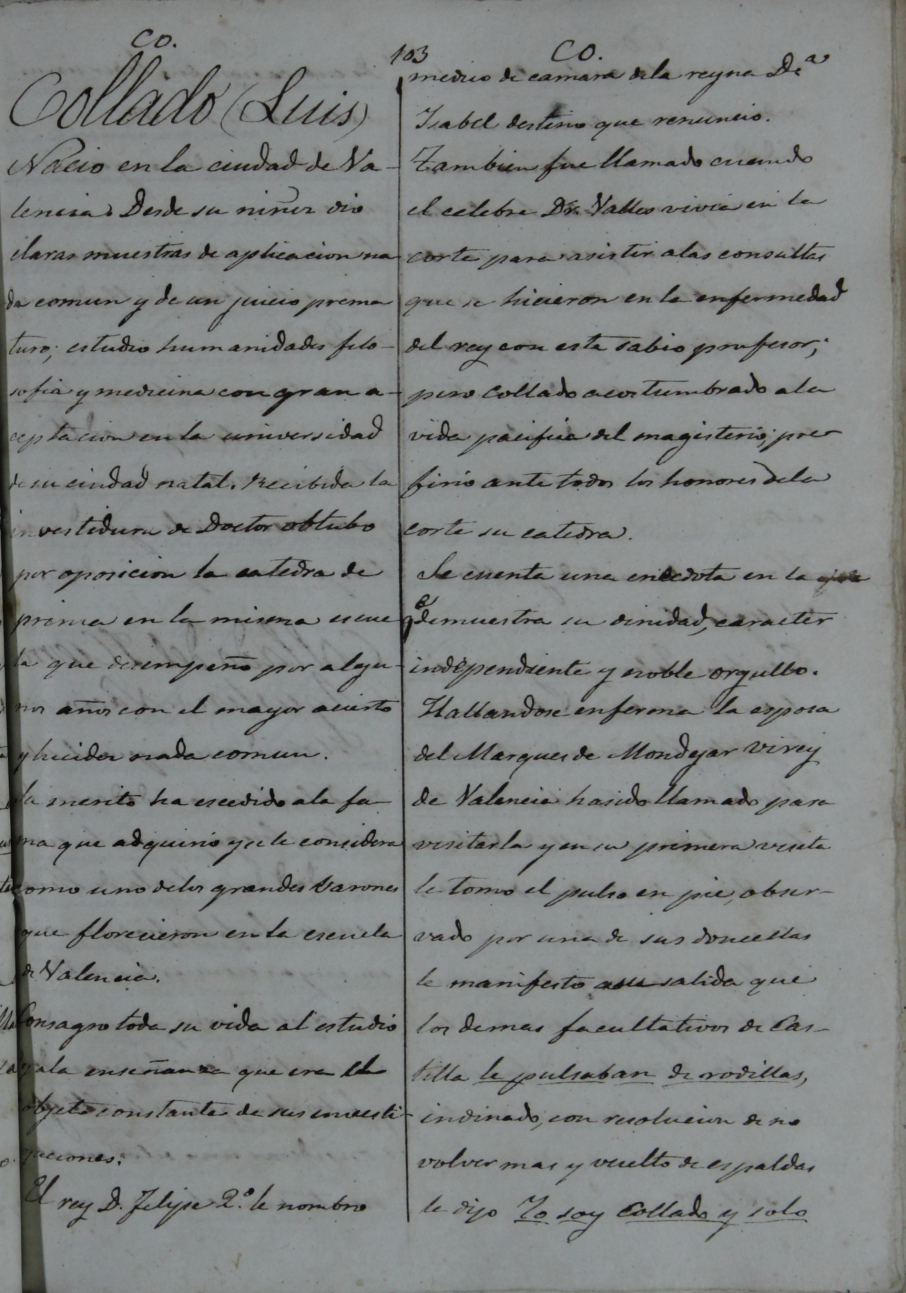 CO.
103
CO.
Collado (Luis)
Nacio en la ciudad de Va-
lencia. Desde su niñez dio
claras muestras de aplicacion na
da comun y de un juicio prema
turo; estudio humanidades filo-
sofia y medicina con gran a-
ceptacion en la universidad
de su ciudad natal. Recibida la
investidura de Doctor obtubo
por oposicion la catedra de
prima en la misma escue
la que desempeño por algu-
nos años con el mayor acierto
y lucidez nada comun.
Su merito ha escedido a la fa
ma que adquirio y se le considera
como uno de los grandes varones
que florecieron en la escuela
de Valencia.
Consagro toda su vida al estudio
y a la enseñanza que era el
objeto constante de sus investi-
gaciones.
El rey D. Felipe 2º le nombro
medico de camara de la reyna Dª
Isabel destino que renuncio.
Tambien fue llamado cuando
el celebre Dr. Valles vivia en la
corte para asistir a las consultas
que se hicieron en la enfermedad
del rey con este sabio profesor;
pero Collado acostumbrado a la
vida pacifica del magisterio, pre
firio ante todos los honores de la
corte su catedra.
Se cuenta una enecdota en la
demuestra su dinidad, caracter
independiente y noble orgullo.
Hallandose enferma la esposa
del Marques de Mondejar virey
de Valencia ha sido llamado para
visitarla y en su primera visita
le tomo el pulso en pie, obser-
vado por una de sus doncellas
le manifesto a su salida que
los demas facultativos de Cas-
tilla le pulsaban de rodillas,
indinado, con resolucion de no
volver mas y vuelto de espaldas
le dijo Yo soy Collado y solo